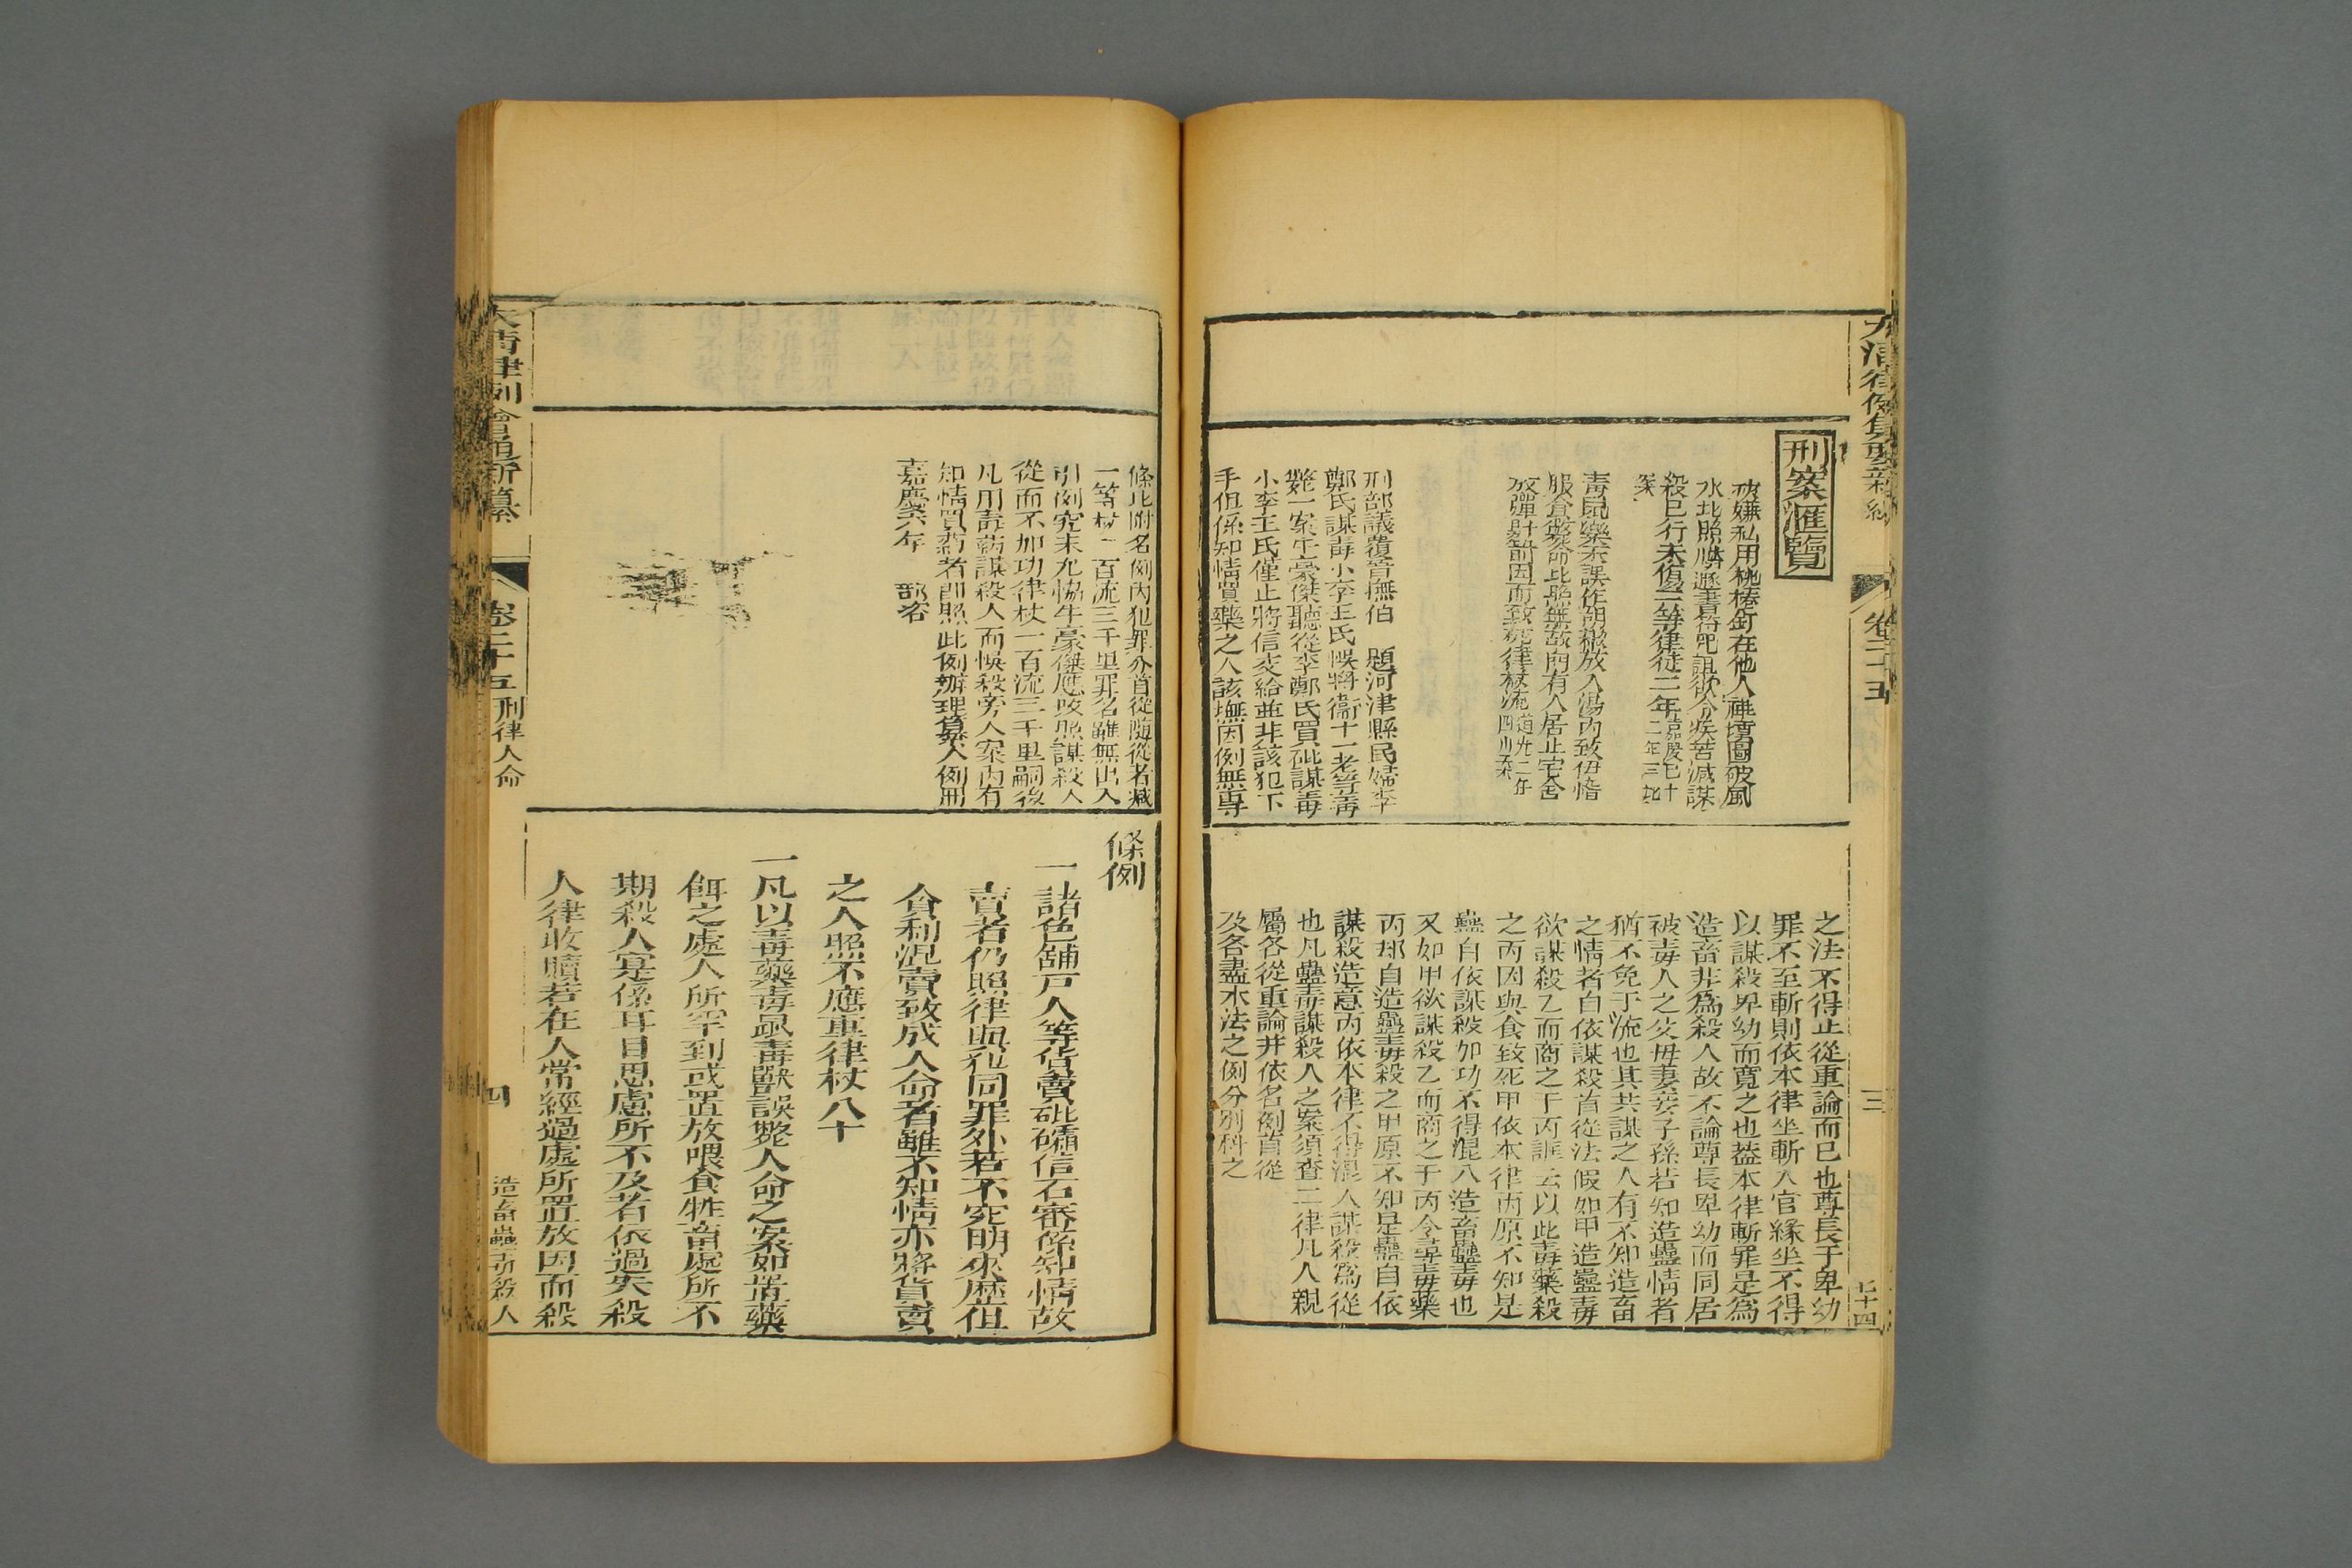 刑案滙覽
被嫌私用桃樁釘在他人禆墳圖破風
水比照懲書符咒詛欲令疾苦減謀
殺已行未傷二等律徒二年
案
毒鼠藥末誤作胡椒放入湯內致毋惜
服食斃命比照無故向有人居止宅舍
放彈射箭因而致死律杖流道光二年四川案
刑部議覆晉撫伯 題河津縣民婦李
鄭氏謀毒小李王氏悞將衞十一老等毒
斃一案牛豪傑聽從李鄭氏買砒謀毒
小李王氏僅止將信交給並非該犯下
手但係知情買藥之人該撫因例無專
之法不得止從重論而已也尊長于卑幼
罪不至斬則依本律坐斬入官緣坐不得
以謀殺卑幼而寬之也葢本律斬罪是爲
造畜非爲殺人故不論尊長卑幼而同居
被毒人之父母妻妾子孫若知造蠱情者
猶不免于流也其共謀之人有不知造畜
之情者自依謀殺首從法假如甲造蠱毒
欲謀殺乙而商之于丙誆云以此毒藥殺
之丙因與食致死甲依本律丙原不知是
蠱自依謀殺加功不得混入造畜蠱毒也
又如甲欲謀殺乙而商之于丙令尋毒藥
丙却自造蠱毒殺之甲原不知是蠱自依
謀殺造意丙依本律不得混入謀殺爲從
也凡蠱毒謀殺人之案須查二律凡人親
屬各從重論并依名例首從
及各盡本法之例分別科之
卷二十五
三
七十四
條比附名例內犯罪分首從隨從者減
一等杖一百流三千里罪名雖無出入
引例究未允協牛豪傑應改照謀殺人
從而不加功律杖一百流三千里嗣後
凡用毒葯謀殺人而悞殺旁人案內有
知情買葯者卽照此例辦理纂入例冊
嘉慶六年 部咨
條例
一諸色舖戸人等貨賣砒礵信石審係知情故
賣者仍照律與犯同罪外若不究明來歷但
貪利混賣致成人命者雖不知情亦將貨賣
之人照不應重律杖八十
一凡以毒藥毒鼠毒獸誤斃人命之案如置藥
餌之處人所罕到或置放喂食牲畜處所不
期殺人寔係耳目思慮所不及者依過失殺
人律收贖若在人常經過處所置放因而殺
大清律例會通新纂
卷二十五
刑律人命
四
造畜蠱毒殺人